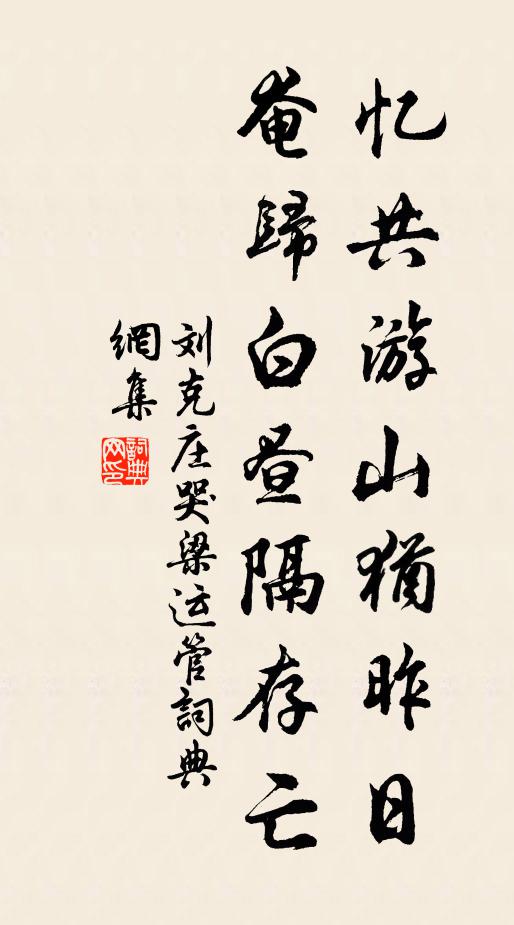 忆共游山猶昨日
奄歸白昼隔存亡
刘克庄哭梁运管詞典
網集
詞典
网印